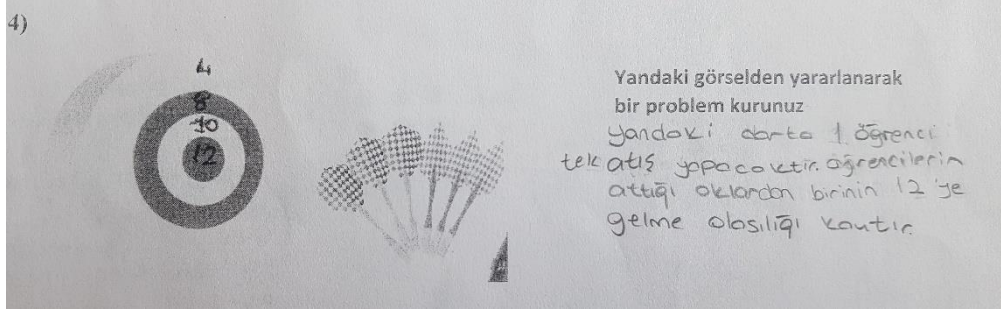 4)
4
8
10
12
Yandaki görselden yararlanarak
bir problem kurunuz
yandaki darta 1 öğrenci
tek atış yapacaktır. öğrencilerin
attığı oklardan birinin 12'ye
gelme olasılığı kaçtır